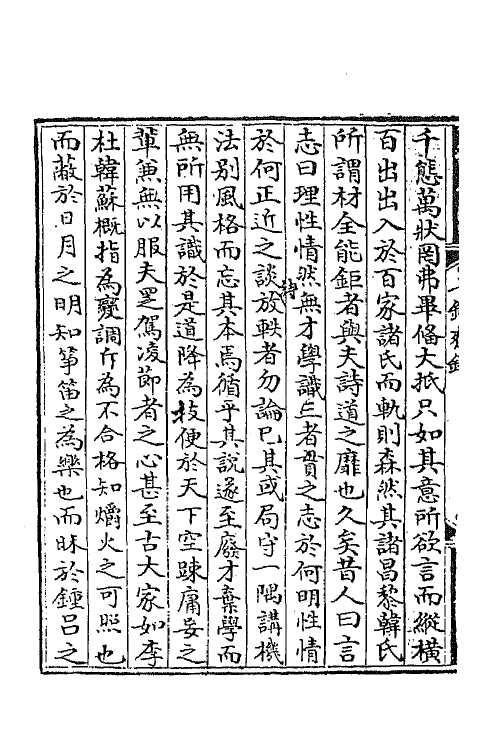 千態萬狀罔弗畢偹大抵只如其意所欲言而縱橫
百出出入於百家諸氏而軌則森然其諸昌黎韓氏
所謂材全能鉅者與夫詩道之靡也久矣昔人曰言
志曰理性情然無才學識三者貫之志於何明性情
於何正近之談詩放軼者勿論已其或局守一隅講機
法别風格而忘其本焉循乎其説遂至廢才棄學而
無所用其識於是道降為技便於天下空踈庸妄之
輩兼無以服夫泛駕凌節者之心甚至古大家如李
杜韓蘇概指為變調斥為不合格知爝火之可照也
而蔽於日月之明知箏笛之為樂也而昧於鍾呂之